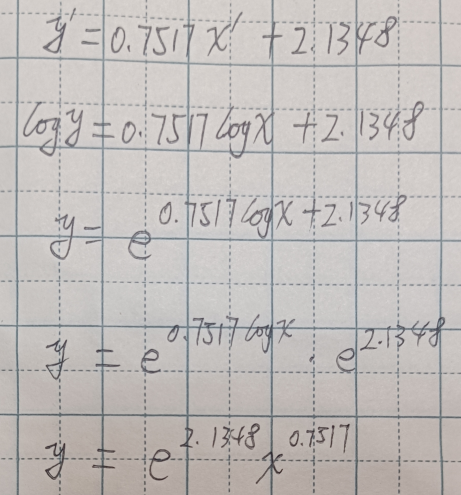 y' = 0.7517 x' + 2.1348
log y = 0.7517 log x + 2.1348
y = e^{0.7517 log x + 2.1348}
y = e^{0.7517 log x} · e^{2.1348}
y = e^{2.1348} x^{0.7517}